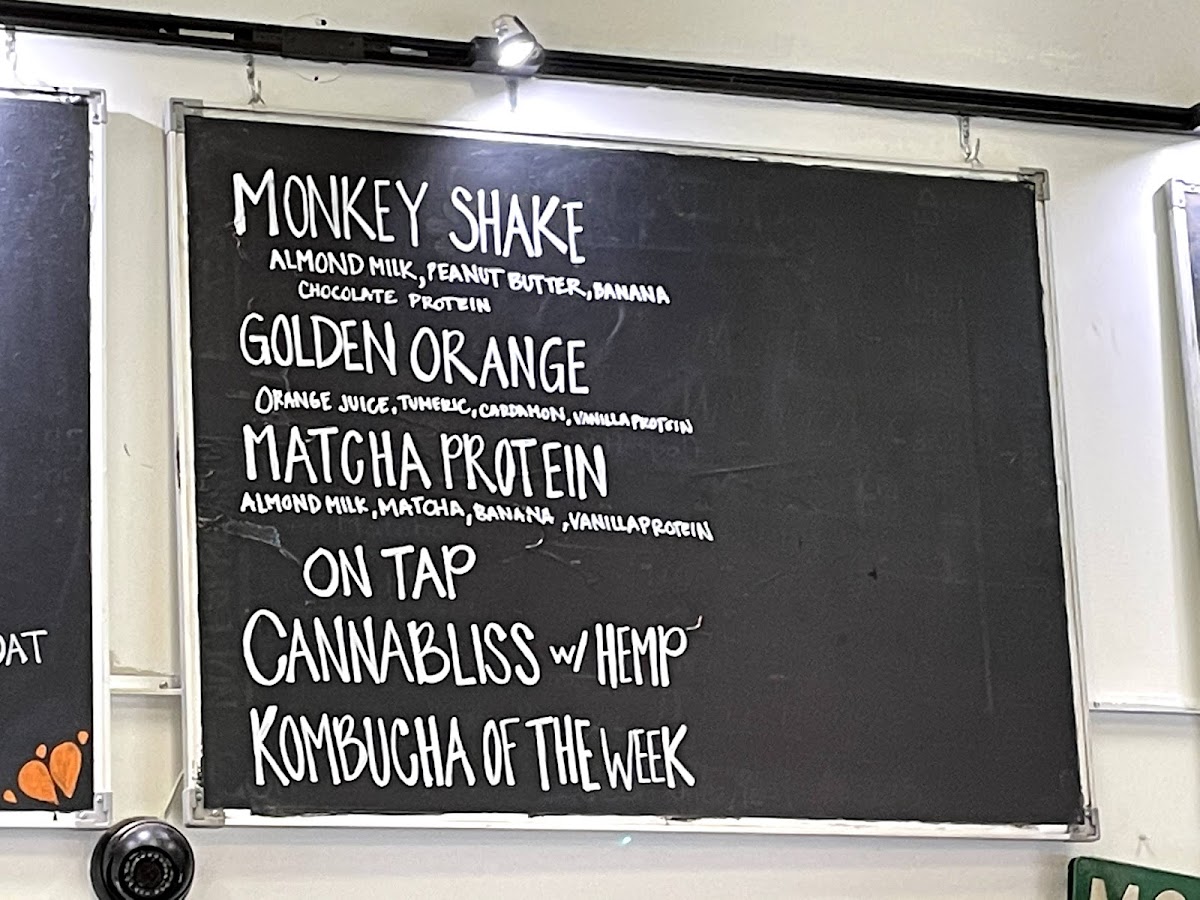 MONKEY SHAKE
ALMOND MILK, PEANUT BUTTER, BANANA
CHOCOLATE PROTEIN
GOLDEN ORANGE
ORANGE JUICE, TUMERIC, CARDAMON, VANILLA PROTEIN
MATCHA PROTEIN
ALMOND MILK, MATCHA, BANANA, VANILLA PROTEIN
ON TAP
CANNABLISS w/ HEMP
KOMBUCHA OF THE WEEK